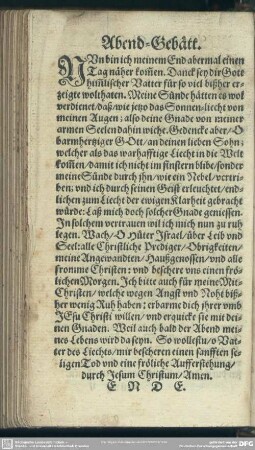 Abend-Gebätt.
NUn bin ich meinem End abermal einen
Tag näher kom̃en. Danck sey dir Gott
him̃lischer Vatter für so viel bißher er-
zeigte wolthaten. Meine Sünde hätten es wol
verdienet/daß/wie jetzo das Sonnen-liecht von
meinen Augen; also deine Gnade von meiner
armen Seelen dahin wiche. Gedencke aber/O
barmhertziger GOtt/an deinen lieben Sohn;
welcher als das warhafftige Liecht in die Welt
kom̃en/damit ich nicht im finstern blibe/sonder
meine Sünde durch ihn/wie ein Nebel/vertri-
ben; vnd ich durch seinen Geist erleuchtet/end-
lichen zum Liecht der ewigen Klarheit gebracht
würde: Laß mich doch solcher Gnade geniessen.
In solchem vertrauen wil ich mich nun zu ruh
legen. Wach/O Hüter Israel/über Leib vnd
Seel: alle Christliche Prediger/Obrigkeiten/
meine Angewandten/Haußgenossen/vnd alle
fromme Christen: vnd beschere vns einen frö-
lichen Morgen. Ich bitte auch für meine Mit-
Christen/welche wegen Angst vnd Noht diß-
her wenig Ruh haben; erbarme dich ihrer vmb
JEsu Christi willen/vnd erquicke sie mit dei-
nen Gnaden. Weil auch bald der Abend mei-
nes Lebens wird da seyn. So wollestu/o Va-
ter des Liechts/mir bescheren einen sanfften se-
ligen Tod vnd eine fröliche Aufferstehung/
durch Jesum Christum/Amen.
E N D E.